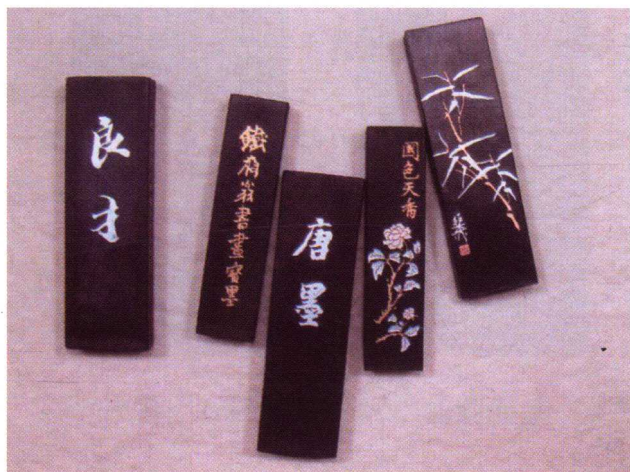 良才
鐵齋翁書畫寶墨
唐墨
國色天香